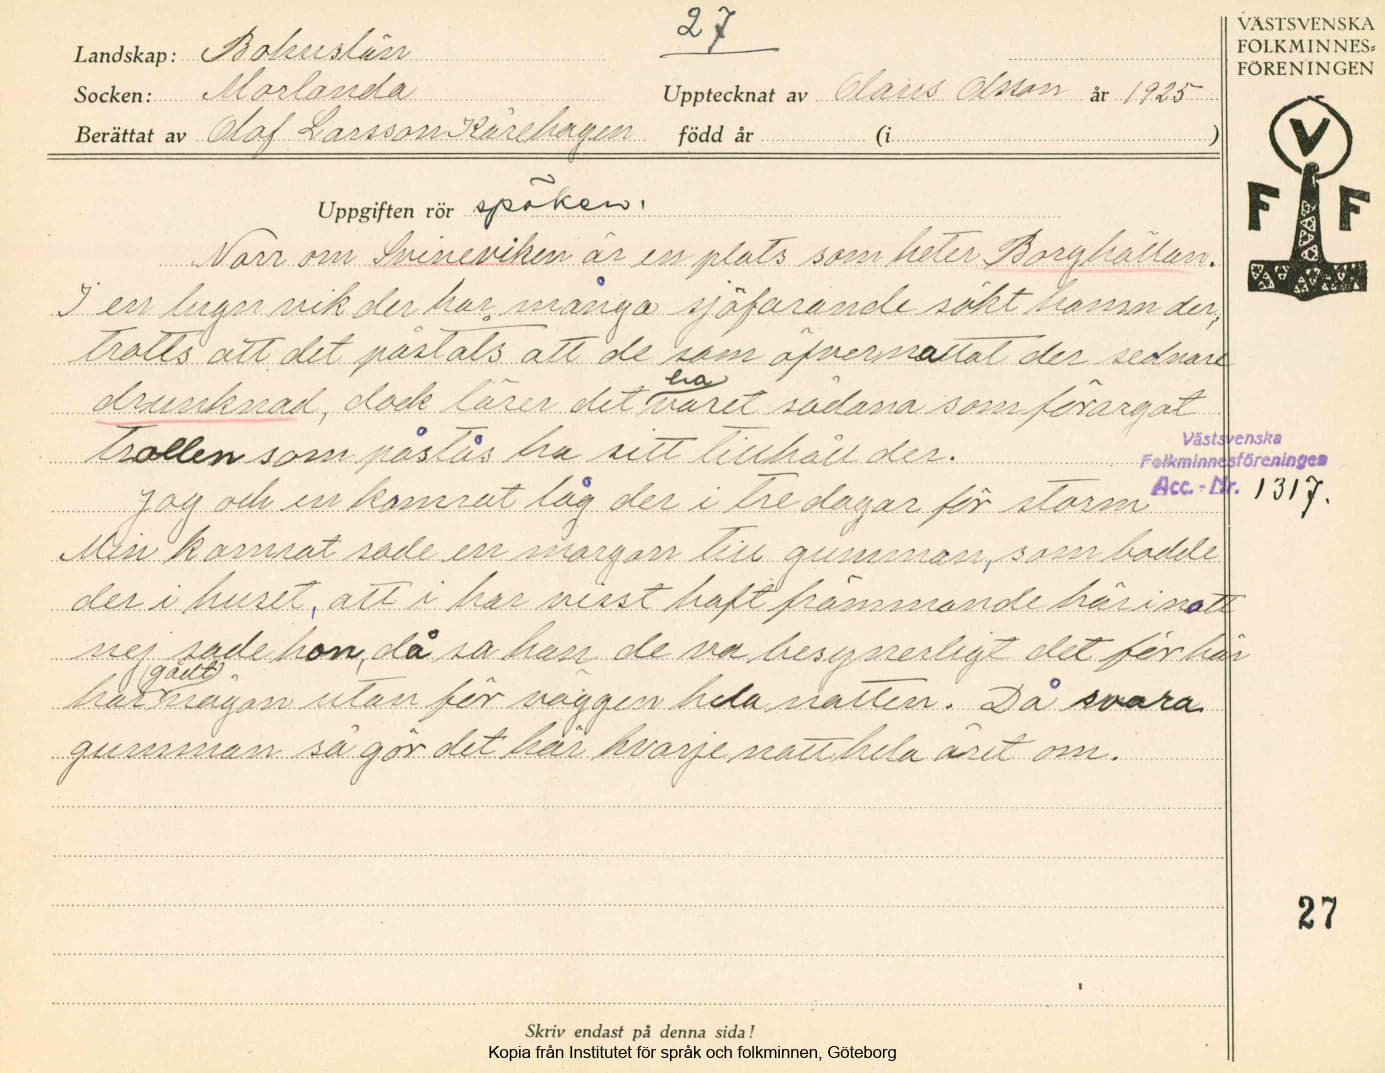 27
VÄSTSVENSKA
FOLKMINNES=
FÖRENINGEN
Landskap: Bohuslän
Socken: Morlanda
Upptecknat av Olaus Olsson år 1925
Berättat av Olof Larsson Kårehagen född år (i )
V
F F
Uppgiften rör spöken.
Norr om Svineviken är en plats som heter Borghällan.
I en lugn vik der har många sjöfarande sökt hamn der,
trotts att det påståts att de som öfvernattat der sednare
drunknad, dock lärer det ha varet sådana som förargat
trollen som påstås ha sitt tillhåll der.
Jag och en kamrat låg der i tre dagar för storm
Min kamrat sade en margon till gumman, som bodde
der i huset, att i har visst haft främmande här i natt
nej sade hon, då sa han de va besynerligt det för här
har gått någon utan för väggen hela natten. Då svara
gumman så gör det här hvarje natt hela året om.
Västsvenska
Folkminnesföreningen
Acc. - Nr. 1317.
27
Skriv endast på denna sida!
Kopia från Institutet för språk och folkminnen, Göteborg